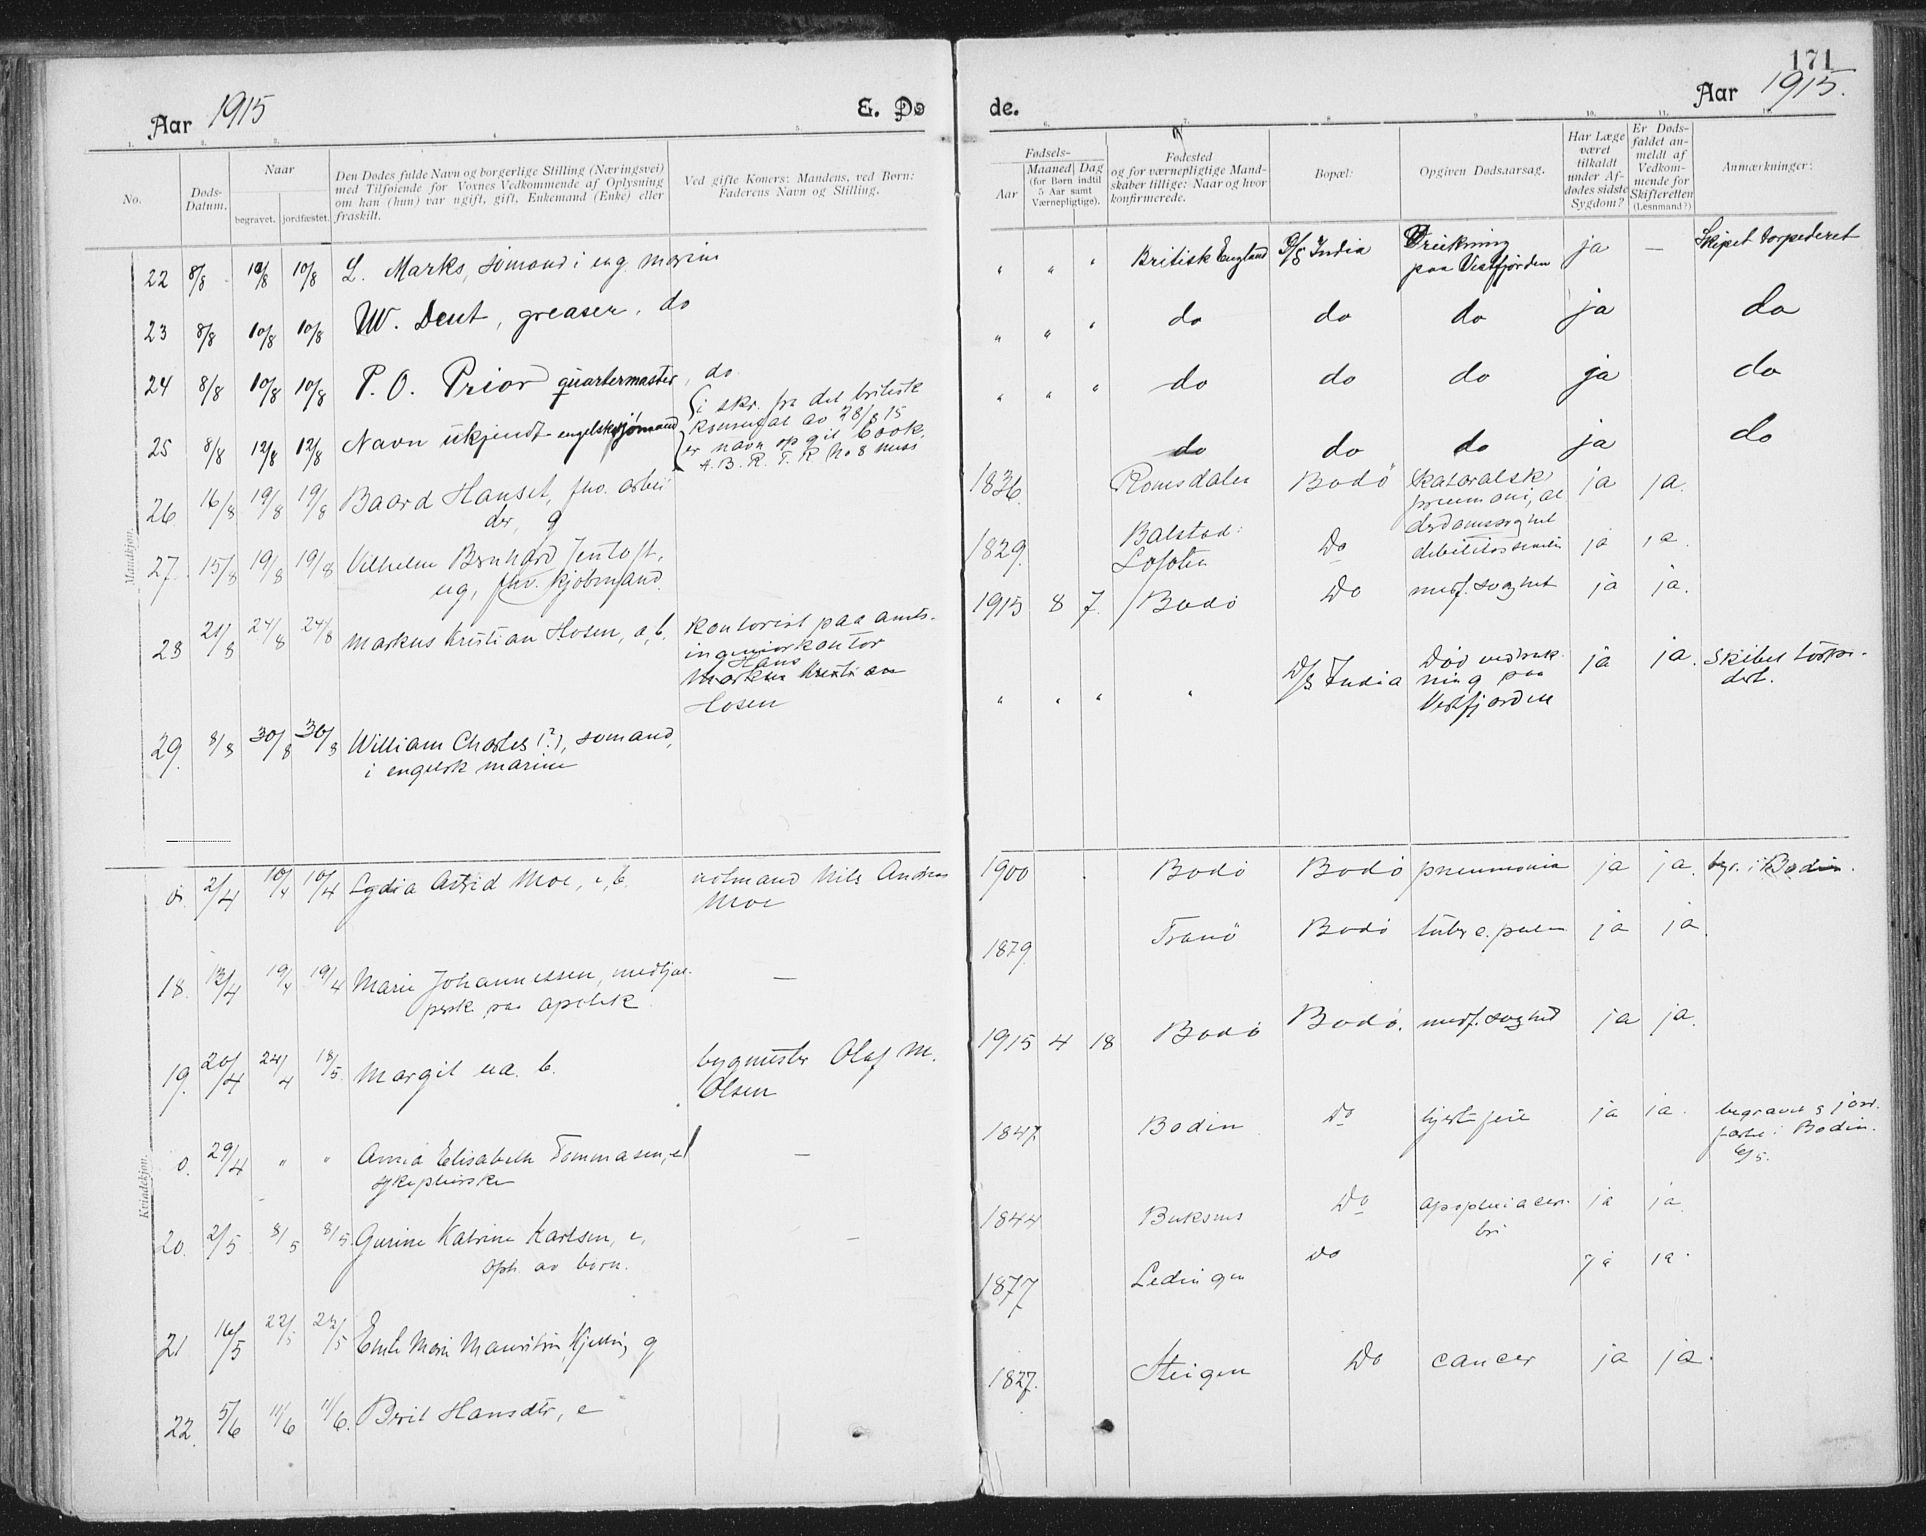 171
Aar 1915
E. Dø
de.
Aar 1915.
1. 2. 3. 4. 5. 6. 7. 8. 9. 10. 11. 12.
No.
Døds-
Datum.
Naar
begravet. jordfæstet.
Den Dødes fulde Navn og borgerlige Stilling (Næringsvei)
med Tilføiende for Voxnes Vedkommende af Oplysning
om han (hun) var ugift, gift, Enkemand (Enke) eller
fraskilt.
Ved gifte Koners: Mandens, ved Børn:
Faderens Navn og Stilling.
Fødsels-
Aar
Maaned Dag
(for Børn indtil
5 Aar samt
Værnepligtige).
Fødested
og for værnepligtige Mand-
skaber tillige: Naar og hvor
konfirmerede.
Bopæl:
Opgiven Dødsaarsag.
Har Læge
været
tilkaldt
under Af-
dødes sidste
Sygdom?
Er Døds-
faldet an-
meldt af
Vedkom-
mende for
Skifteretten
(Lensmand?)
Anmærkninger:
Mandkjøn.
22 8/8 10/8 10/8 L. Marks, sømand i eng. marine " " " Britisk England D/S India Drukning ja — Skipet torpederet
paa Vestfjorden
23 8/8 10/8 10/8 W. Dent, greaser, do " " " do do do ja do
24 8/8 10/8 10/8 P. O. Prior quartermaster, do " " " do do do ja do
25 8/8 12/8 12/8 Navn ukjendt engelsk sjømand do do do ja do
i skr. fra det britisk
konsulat av 28/8 15
er navn opgit Cook,
A. B. R. F. R No 8
26 16/8 19/8 19/8 Baard Hanset, fhv. arbei 1836 Romsdalen Bodö katarralsk ja ja.
der, g
27. 15/8 19/8 19/8 Vilhelm Bernhard Jentoft, 1829. Balstad: Do debilitas senilis ja ja
ug, fhv. kjøbmand. Lofoten
28 21/8 24/8 24/8 Markus Kristian Hosen, a, b. kontorist paa amts- 1915 8 7. Bodö Do medf. svaghet ja ja.
ingeniørkontor
Hans
Markus Kristian
Hosen
29. 8/8 30/8 30/8 William Charles (?), sømand, " " " D/S India Død ved druk- ja ja. Skibet torpe-
i engelsk marine ning paa dert.
Vestfjorden
Kvindekjøn.
0. 2/4 10/4 10/4 Lydia Astrid Moe, b. Nils Andreas 1900 Bodö Bodö pneumonia ja ja. bgr. i Bodin.
Moe
18. 13/4 19/4 19/4 Marie Johannessen, medhjæl- — 1879. Tranö Bodö tuberc. pulm ja ja
perske paa apotek.
19. 20/4 24/4 18/5. Margit ua. b. bygmester Olaf M. 1915 4 18 Bodö Bodö. medf. svaghed ja ja.
Olsen
0. 29/4 " " Anna Elisabeth Tommasen, — 1847. Bodin Do hjertefeil ja ja. begravet & jord-
sykepleierske fæstet i Bodin.
6/5.
20. 2/5 8/5 8/5. Gurine Katrine Karlsen, e, — 1844 Buksnes Do apoplexia cere- ja ja.
oph. av børn. bri
21 16/5 22/5 22/5 Marie Kjelling g 1877 Lødingen Do ja ja.
22. 5/6 11/6 11/6. Berit Hansdtr, e 1827. Steigen Do cancer ja ja.